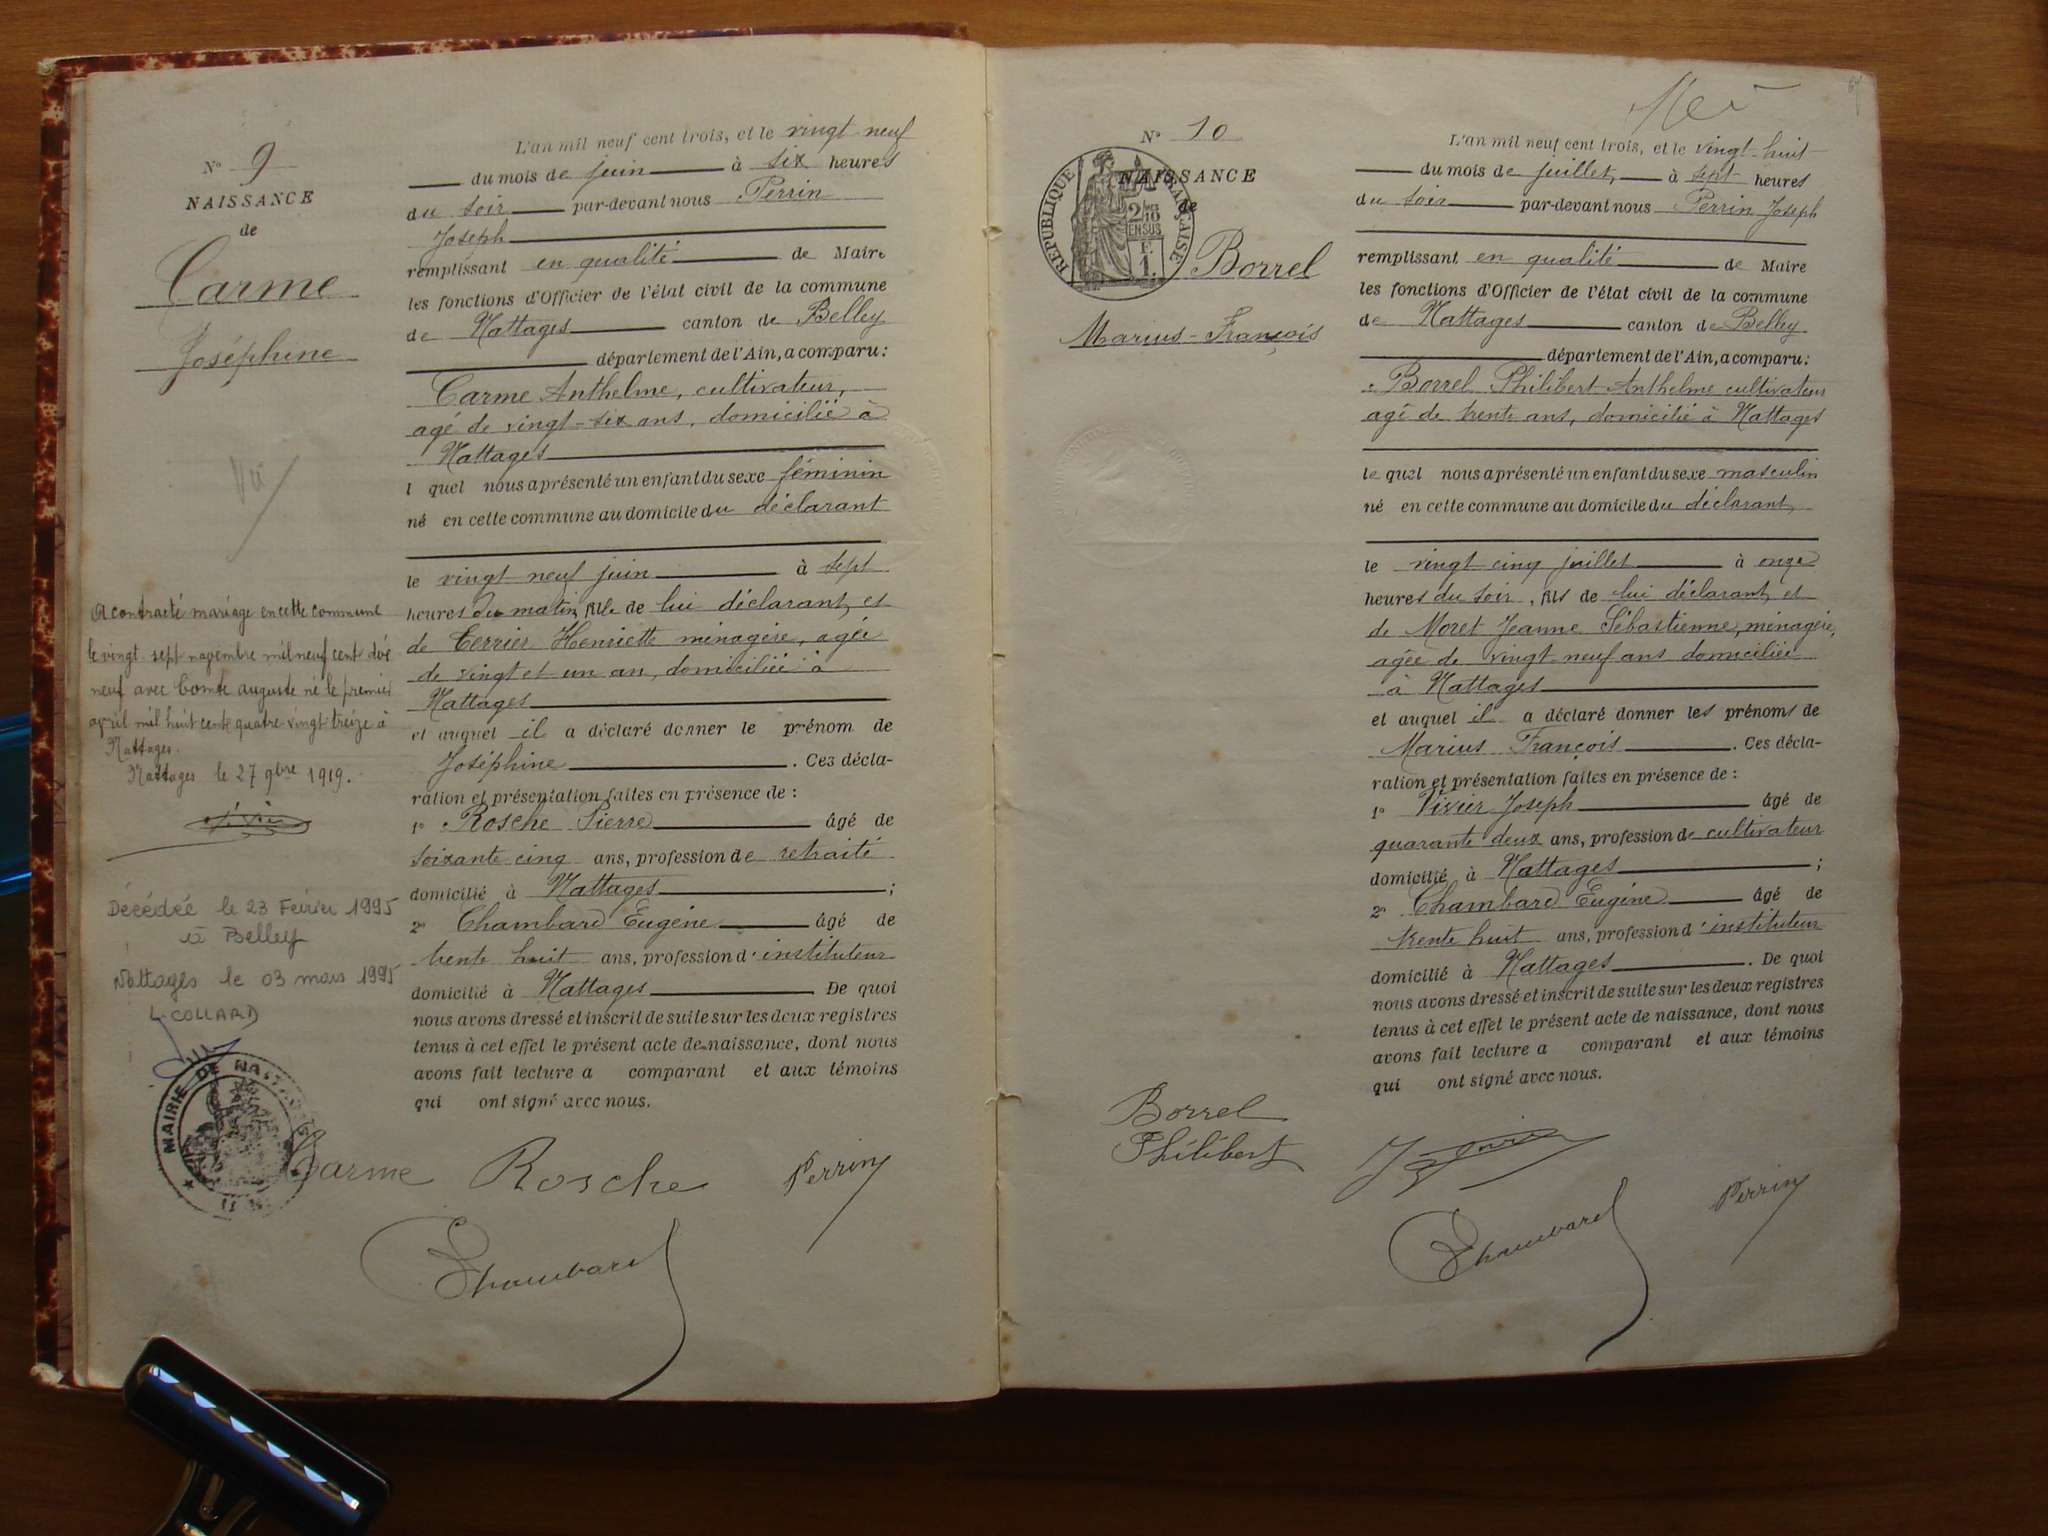 N° 9
NAISSANCE
de
Carme
Joséphine
Vu
A contracté mariage en cette commune
le vingt sept novembre mil neuf cent dix
neuf avec Comte auguste né le premier
avril mil huit cent quatre vingt treize à
Nattages.
Nattages le 27 9bre 1919.
Décédée le 23 Février 1995
à Belley
Nattages le 03 mars 1995
L. COLLARD
MAIRIE DE NATTAGES
L'an mil neuf cent trois, et le vingt neuf
du mois de juin à six heures
du soir par-devant nous Perrin
Joseph
remplissant en qualité de Maire
les fonctions d'Officier de l'état civil de la commune
de Nattages canton de Belley
département de l'Ain, a comparu:
Carme Anthelme, cultivateur,
agé de vingt-six ans, domicilié à
Nattages
l quel nous a présenté un enfant du sexe féminin
né en cette commune au domicile du déclarant
le vingt neuf juin à sept
heures du matin, fille de lui déclarant, et
de Terrier Henriette ménagère, agée
de vingt et un an, domiciliée à
Nattages
et auquel il a déclaré donner le prénom de
Joséphine. Ces décla-
ration et présentation faites en présence de :
1° Rosche Pierre âgé de
soixante cinq ans, profession de retraité
domicilié à Nattages ;
2° Chambard Eugène âgé de
trente huit ans, profession d'instituteur
domicilié à Nattages De quoi
nous avons dressé et inscrit de suite sur les deux registres
tenus à cet effet le présent acte de naissance, dont nous
avons fait lecture a comparant et aux témoins
qui ont signé avec nous.
Carme Rosche Perrin
Chambard
67
N° 10
NAISSANCE
de
RÉPUBLIQUE FRANÇAISE
2/10
EN SUS
F.
1.
Borrel
Marius-François
L'an mil neuf cent trois, et le vingt-huit
du mois de juillet, à sept heures
du soir par-devant nous Perrin Joseph
remplissant en qualité de Maire
les fonctions d'Officier de l'état civil de la commune
de Nattages canton de Belley
département de l'Ain, a comparu:
Borrel Philibert Anthelme cultivateur
agé de trente ans, domicilié à Nattages
le quel nous a présenté un enfant du sexe masculin
né en cette commune au domicile du déclarant,
le vingt cinq juillet à onze
heures du soir, fils de lui déclarant, et
de Moret Jeanne Sébastienne, ménagère,
agée de vingt-neuf ans domiciliée
à Nattages
et auquel il a déclaré donner les prénoms de
Marius François. Ces décla-
ration et présentation faites en présence de :
1° Vivier Joseph âgé de
quarante deux ans, profession de cultivateur
domicilié à Nattages ;
2° Chambard Eugène âgé de
trente huit ans, profession d'instituteur
domicilié à Nattages. De quoi
nous avons dressé et inscrit de suite sur les deux registres
tenus à cet effet le présent acte de naissance, dont nous
avons fait lecture a comparant et aux témoins
qui ont signé avec nous.
Borrel
Philibert
Chambard Perrin